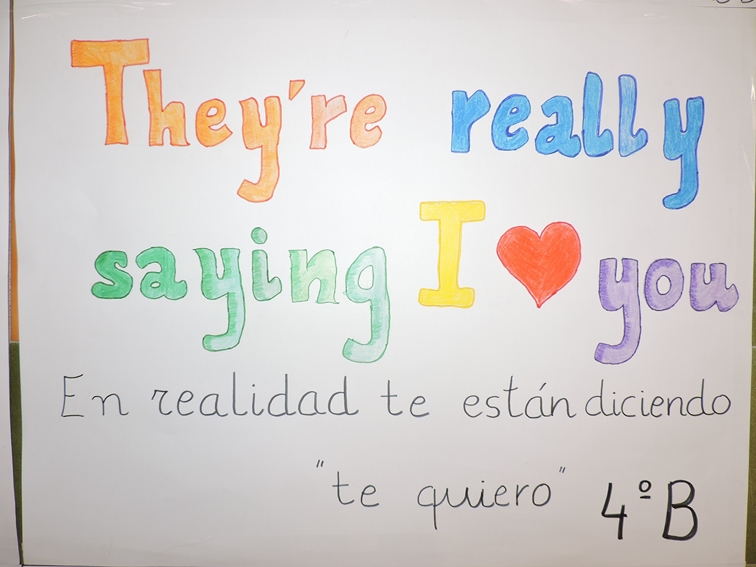 They're really
saying I ❤ you
En realidad te están diciendo
"te quiero" 4º B